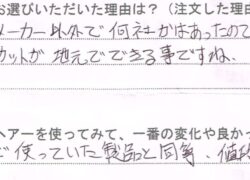 お選びいただいた理由は？（注文した理
メーカー以外で何社かはあったので
カットが地元でできる事ですね.
ヘアーを使ってみて、一番の変化や良かっ
使っていた製品と同等、値